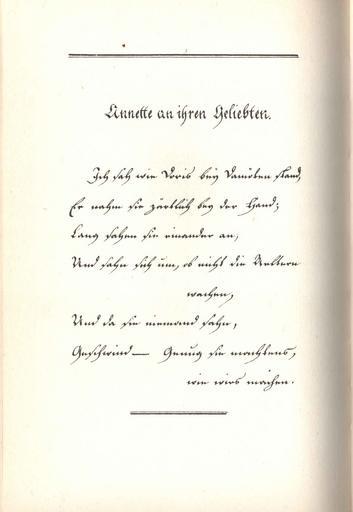 Annette an ihren Geliebten.
Ich sah wie Doris bey Damöten stand,
Er nahm sie zärtlich bey der Hand;
Lang sahen sie einander an,
Und sahn sich um, ob nicht die Aeltern
wachen,
Und da sie niemand sahn,
Geschwind— Genug sie machtens,
wie wirs machen.